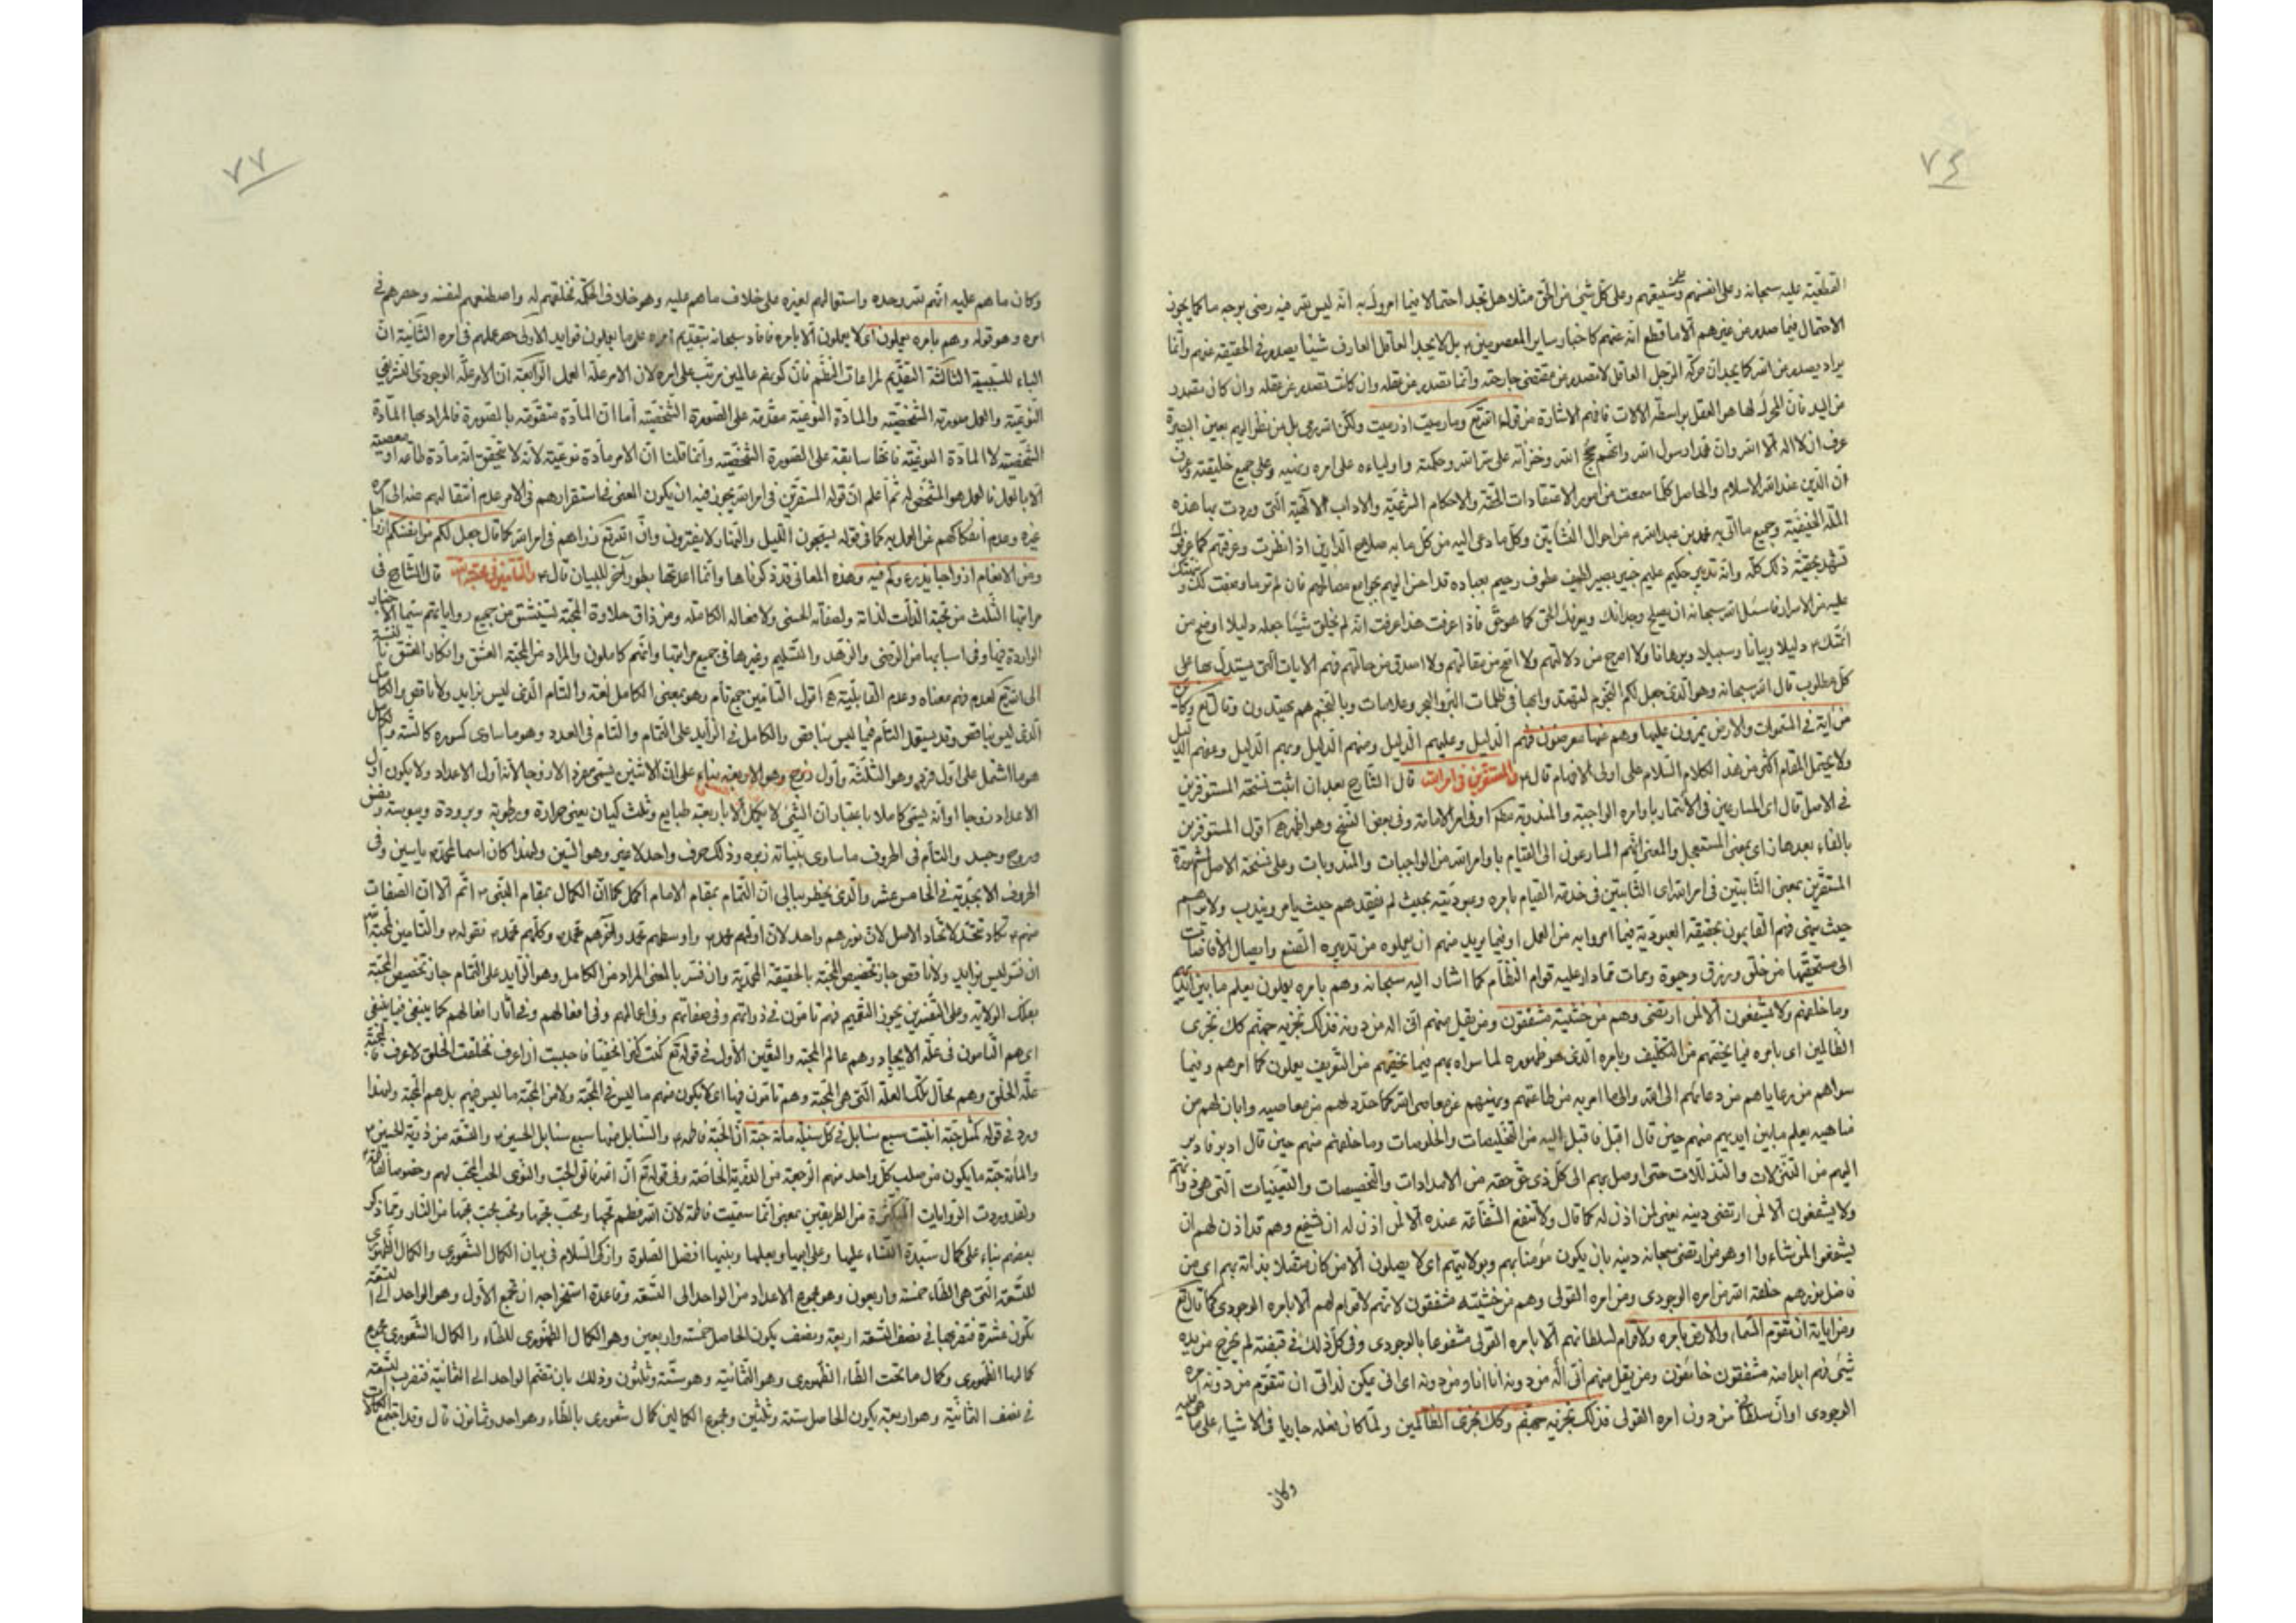 ٧٤
القطعية عليه سبحانه وعلى انفسهم وشيعتهم وعلى كل شئ من الخلق مثلا هل تجد احتمالا فيما امروك به انه ليس يقر فيه رضى بوجه ما كما يجوز
الاحتمال فيما صدر من غيرهم الا ما قطع انه عنهم كاخبار ساير المعصومين بل لا يجد العاقل العارف شيئا يصدر في الحقيقة عنهم وانما
يراد يصدر من الله كما يجد ان حركة الرجل العاقل لا تصدر من مقتضى جارحته وانما تصدر من عقله وان كانت تصدر عن عقله وان كان مصدر
من اليد فان المحرك لها هو العقل بواسطة الالات فافهم الاشارة من قوله تع وما رميت اذ رميت ولكن الله رمى بل من نظر اليهم بعين البصيرة
عرف ان لا اله الا الله وان محمدا رسول الله وانهم حجج الله وخزانه على سر الله وحكمته واولياءه على امره ونهيه وعلى جميع خليقته وعرف
ان الدين عند الله الاسلام والحاصل كلما سمعت من امور الاعتقادات الحقة والاحكام الشرعية والاداب الالهية التي وردت بها هذه
الملة الحنيفية وجميع ما اتى به محمد بن عبد الله من احوال النشأتين وكل ما دعى اليه من كل ما به صلاح الدارين اذا نظرت وعرفتهم كما عرفوك
تشهد بحقية ذلك كله وانه تدبير حكيم عليم خبير بصير لطيف عطوف رحيم بعباده قد احسن اليهم بجوامع مصالحهم فان لم تر ما وصفت لك و
عليه من الاسرار فاسئل الله سبحانه ان يصلح وجدانك ويعرفك الحق كما هو حق فاذا عرفت هذا عرفت انه لم يخلق شيئا جعله دليلا اوضح من
ائمتك دليلا وبيانا وسبيلا وبرهانا ولا اصرح من دلالتهم ولا اصح من مقالتهم ولا اصدق من حالتهم فهم الايات التي يستدل بها على
كل مطلوب قال الله سبحانه وهو الذي جعل لكم النجوم لتهتدوا بها في ظلمات البر والبحر وعلامات وبالنجم هم يهتدون وقال تع وكاين
من اية في السموات والارض يمرون عليها وهم عنها معرضون فهم الدليل وعليهم الدليل ومنهم الدليل وبهم الدليل وعنهم الدليل
ولا يحتمل المقام اكثر من هذا الكلام السلام على اولى الافهام قال والمستقرين في امر الله قال الشارح بعد ان اثبت نسخة المستوفرين
في الاصل قال اى المسارعين في الائتمار باوامره الواجبة والمندوبة او في امر الامامة وفي بعض النسخ وهو اظهر اقول المستوفزين
بالفاء بعدها زاى بمعنى المستعجل والمعنى انهم المسارعون الى القيام باوامر الله من الواجبات والمندوبات وعلى نسخة الاصل المشهورة
المستقرين بمعنى الثابتين في امر الله اى الثابتين في خدمة القيام بامره وعبوديته بحيث لم يفقدهم حيث يامر ويندب ولا يراهم
حيث ينهى فهم القايمون بحقيقة العبودية فيما امروا به من العمل او فيما يريد منهم ان يعملوه من تدبيره الصنع وايصال الافاضات
الى مستحقيها من خلق ورزق وحيوة وممات مما دار عليه قوام النظام كما اشار اليه سبحانه وهم بامره يعملون يعلم ما بين ايديهم
وما خلفهم ولا يشفعون الا لمن ارتضى وهم من خشيته مشفقون ومن يقل منهم انى اله من دونه فذلك نجزيه جهنم كذلك نجزى
الظالمين اى بامره فيما يختصهم من التكليف وبامره الذي هو ظهوره لما سواه بهم فيما يختصهم من التعريف يعملون كما امرهم وفيما
سواهم من رعاياهم من دعائهم الى الله والى ما امر به من طاعتهم ونهيهم عن معاصى الله كما حدد لهم من معاصيه وابان لهم من
مناهيه يعلم ما بين ايديهم منهم حين قال اقبل فاقبل اليه من التخليصات والخلوصات وما خلفهم منهم حين قال ادبر فادبر
اليهم من التنزلات والتذللات حتى اوصل بهم الى كل ذى حق حقه من الامدادات والتخصيصات والتعينيات التي هي ذواتهم
ولا يشفعون الا لمن ارتضى دينه يعنى لمن اذن له كما قال ولا تنفع الشفاعة عنده الا لمن اذن له ان يشفع وهم قد اذن لهم ان
يشفعوا لمن شاءوا او هو من ارتضى سبحانه دينه بان يكون مؤمنا بهم وبولايتهم اى لا يصلون الا من كان متصلا بذاته بهم اى من
فاضل نورهم خلقه الله من امره الوجودى ومن امره القولى وهم من خشيته مشفقون لانهم لا قوام لهم الا بامره الوجودى كما قال تع
ومن اياته ان تقوم السماء والارض بامره ولا قوام لسلطانهم الا بامره القولى مشفوعا بالوجودى وفي كل ذلك في قبضته لم يخرج من يده
شئ فهم ابدا منه مشفقون خائفون ومن يقل منهم انى اله من دونه انا انا ومن دونه اى انى يمكن لذاتى ان تتقوم من دونه امره
الوجودى او ان سلطانى من دون امره القولى فذلك نجزيه جهنم وكذلك نجزى الظالمين ولما كان فعله جاريا في الاشياء على ما هى عليه
وكان
٧٧
وكان ما هم عليه انهم لله وحده واستعمالهم لغيره على خلاف ما هم عليه وهو خلاف الحكمة فخلقهم له واصطنعهم لنفسه وحصرهم في
امره وهو قوله وهم بامره يعملون اى لا يعملون الا بامره فافاد سبحانه بتقديم امره على ما يعملون فوايد الاولى حصر عملهم في امره الثانية ان
الباء للسببية الثالثة التقديم لمراعات النظم فان كونهم عاملين مرتب على امره لان الامر علة العمل الرابعة ان الامر علة الوجودى التشريعى
النوعية والعمل صورته الشخصية والمادة النوعية مقدمة على الصورة الشخصية أما ان المادة متقومة بالصورة فالمراد بها المادة
الشخصية لا المادة النوعية فانها سابقة على الصورة الشخصية وانما قلنا ان الامر مادة نوعية لانه لا يتحقق انه مادة طاعة او معصية
الا بالعمل فالعمل هو المشخص له ثم اعلم ان قوله المستقرين في امر الله يجوز فيه ان يكون المعنى في استقرارهم في الامر عدم انتقالهم عنه الى امر
غيره وعدم انفكاكهم عن العمل به كما في قوله يسبحون الليل والنهار لا يفترون وان الله تع ذراهم في امر الله كما قال جعل لكم من انفسكم ازواجا
ومن الانعام ازواجا يذرءكم فيه وهذه المعانى قد ذكرناها وانما اعدتها بطور آخر للبيان قال والتامين في محبة الله قال الشارح في
مراتبها الثلث من محبة الذات لذاته ولصفاته الحسنى ولافعاله الكاملة ومن ذاق حلاوة المحبة ليستنشق من جميع رواياتهم سيما الاخبار
الواردة فيها وفى اسبابها من الرضى والزهد والتسليم وغيرها في جميع مراتبها وانهم كاملون والمراد من المحبة العشق وانكار العشق بالنسبة
الى الله تع لعدم فهم معناه وعدم القابلية اقول التامين جمع تام وهو بمعنى الكامل لغة والتام الذي ليس بزايد ولا ناقص والكامل
الذي ليس بناقص وقد يستعمل التام فيما ليس بناقص والكامل في الزايد على التمام والتام في العدد وهو ما ساوى كسوره كالستة والكامل
هو ما اشتمل على اول فرد وهو الثلثة واول زوج وهو الاربعة بناء على ان الاثنين ليسى زوجا لانه أول الاعداد ولا يكون اول
الاعداد زوجا او انه يسمى كاملا باعتبار ان الشئ لا يكمل الا باربعة طبايع وثلث كيان يعنى حرارة ورطوبة وبرودة ويبوسة ونفس
وروح وجسد والتام في الحروف ما ساوى بنياته زبره وذلك حرف واحد لا غير وهو السين ولهذا كان اسما لمحمد ياسين وفى
الحروف الابجدية في الخامس عشر والذي يخطر ببالى ان التمام بمقام الامام اكمل كما ان الكمال بمقام النبى اتم الا ان الصفات
منهم تكاد تتحد لاتحاد الاصل لان نورهم واحد لان اولهم محمد واوسطهم محمد وآخرهم محمد وكلهم محمد فقوله والتامين في محبة الله
ان فسر ليس بزايد ولا ناقص جاز تخصيص المحبة بالحقيقة المحمدية وان فسر بالمعنى المراد من الكامل وهو الزايد على التمام جاز تخصيص المحبة
بفلك الولاية وعلى التفسيرين يجوز التعميم فهم تامون في ذواتهم وفى صفاتهم وفى اعمالهم وفى افعالهم وفى آثار افعالهم كما ينبغى فيما ينبغى
اى هم التامون في علة الايجاد وهم عالم المحبة والتعين الاول في قوله تع كنت كنزا مخفيا فاحببت ان اعرف فخلقت الخلق لاعرف فالمحبة
علة الخلق وهم محال تلك العلة التي هى المحبة وهم تامون فيها اى لا يكون منهم ما ليس في المحبة ولا من المحبة ما ليس فيهم بل هم المحبة ولهذا
ورد في قوله كمثل حبة انبتت سبع سنابل في كل سنبلة مائة حبة ان الحبة فاطمة والسنابل منها سبع سنابل الحسين والتسعة من ذرية الحسين
والمائة حبة ما يكون من صلب كل واحد منهم الرجعة من الذرية الخاصة وفى قوله تع ان الله فالق الحب والنوى الحب المحب لهم وخصوصا لفاطمة
ولقد وردت الروايات المتكثرة من الطريقين بمعنى انما سميت فاطمة لان الله فطم محبها ومحب محبها ومحب محب محبها من النار ومما ذكر
بعضهم بناء على كمال سيدة النساء عليها وعلى ابيها وبعلها وبنيها افضل الصلوة وازكى السلام في بيان الكمال الشعورى والكمال الظهورى
للتسعة التي هى الطاء خمسة واربعون وهو مجموع الاعداد من الواحد الى التسعة وقاعدة استخراجه ان تجمع الأول وهو الواحد الى التسعة
تكون عشرة فتضربها في نصف التسعة اربعة ونصف يكون الحاصل خمسة واربعين وهو الكمال الظهورى للطاء والكمال الشعورى مجموع
كمالها الظهورى وكمال ما تحت الطاء الظهورى وهو الثمانية وهو ستة وثلثون وذلك بان تضم الواحد الى الثمانية فتضرب التسعة
في نصف الثمانية وهو اربعة يكون الحاصل ستة وثلثين ومجموع الكمالين كمال شعورى بالطاء وهو احد وثمانون قال وقد اجتمع الكمالات